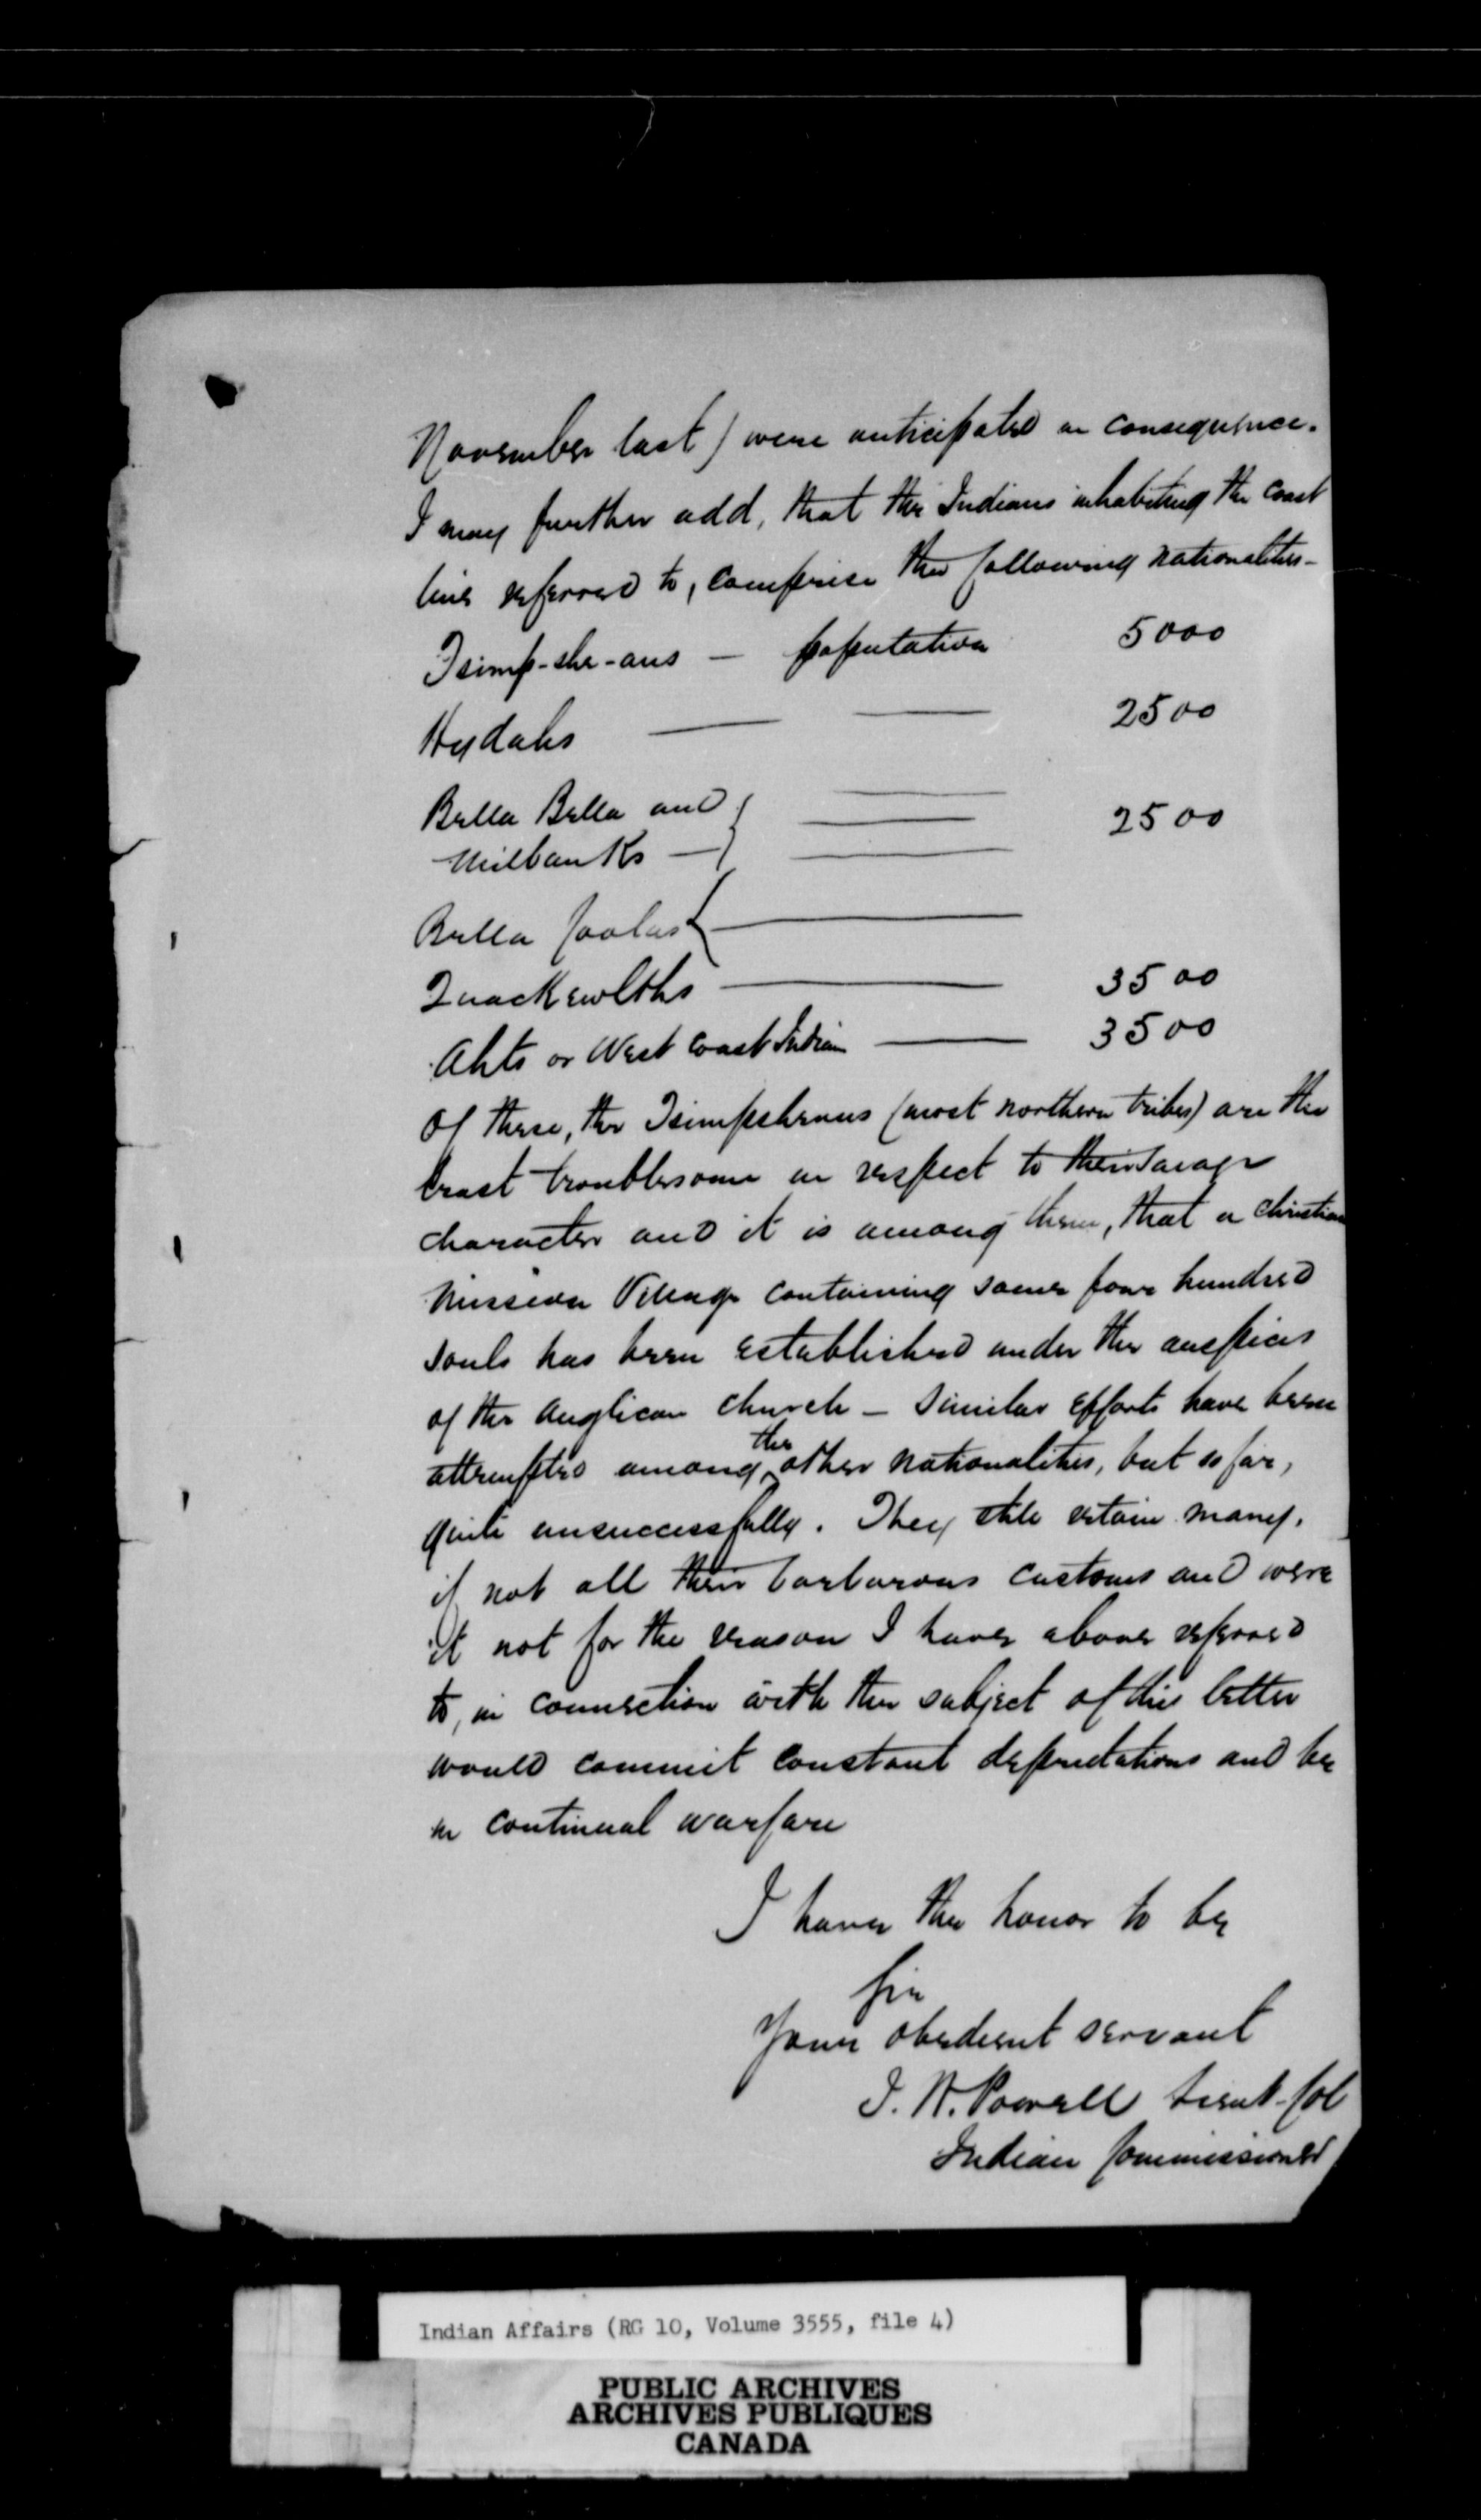 November last) were anticipated in consequence.
I may further add, that the Indians inhabiting the Coast
line referred to, comprise the following nationalities -
Tsimp-she-ans — population 5000
Hydahs — — 2500
Bella Bella and } — 2500
Milbanks — } —
Bella Coolas { —
Quackewlths — 3500
Ahts or West Coast Indian — 3500
Of these, the Tsimpsheans (most northern tribes) are the
least troublesome in respect to their savage
character and it is among them, that a Christian
Mission Village containing some four hundred
souls has been established under the auspices
of the Anglican Church — Similar efforts have been
attempted among the other nationalities, but so far,
quite unsuccessfully. They still retain many,
if not all their barbarous customs and were
it not for the reason I have above referred
to, in connection with the subject of this letter
would commit constant depredations and be
in continual warfare
I have the honor to be
Sir
Your obedient servant
I. W. Powell Lieut-Col
Indian Commissioner
Indian Affairs (RG 10, Volume 3555, file 4)
PUBLIC ARCHIVES
ARCHIVES PUBLIQUES
CANADA